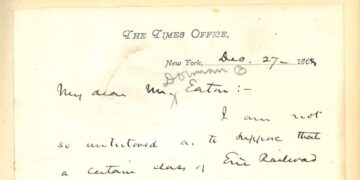 THE TIMES OFFICE,
New York, Dec. 27 – 1868
Dorman B
My dear Mr Eaton:-
I am not
so untutored as to suppose that
a certain class of Erie Railroad